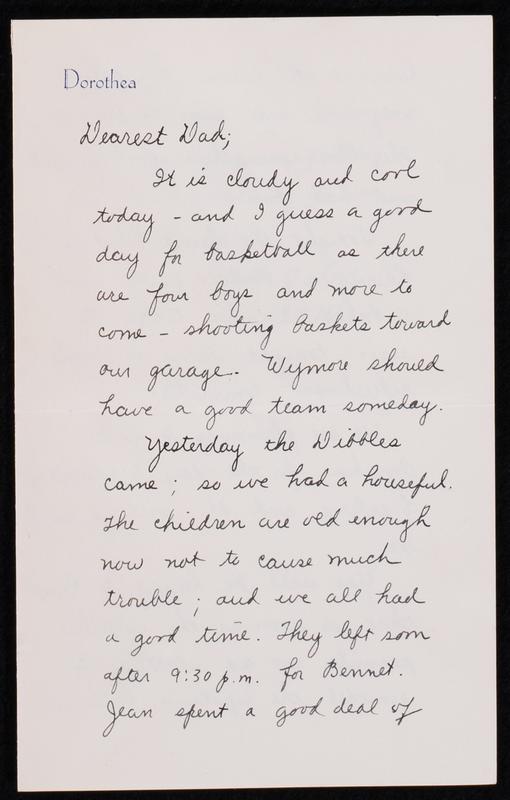 Dorothea
Dearest Dad;
It is cloudy and cool
today - and I guess a good
day for basketball as there
are four boys and more to
come - shooting baskets toward
our garage. Wymore should
have a good team someday.
Yesterday the Dibbles
came; so we had a houseful.
The children are old enough
now not to cause much
trouble; and we all had
a good time. They left soon
after 9:30 p.m. for Bennet.
Jean spent a good deal of